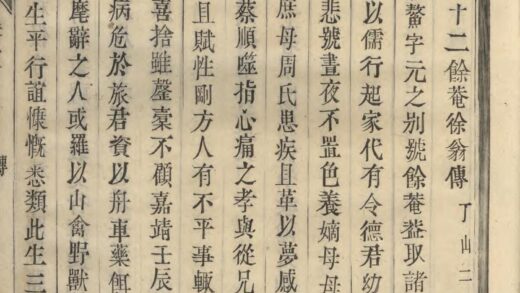 十二餘菴徐翁傳 了山二
鰲字元之別號餘菴葢取諸
以儒行起家代有令德君幼
悲號晝夜不置色養嫡母母
庶母周氏患疾且革以夢感
蔡順噬指心痛之孝與從兄
且賦性剛方人有不平事輙
喜捨雖罄橐不顧嘉靖壬辰
病危於旅君資以舟車藥餌
麾辭之人或羅以山禽野獸
生平行誼慷慨悉類此生三
傳